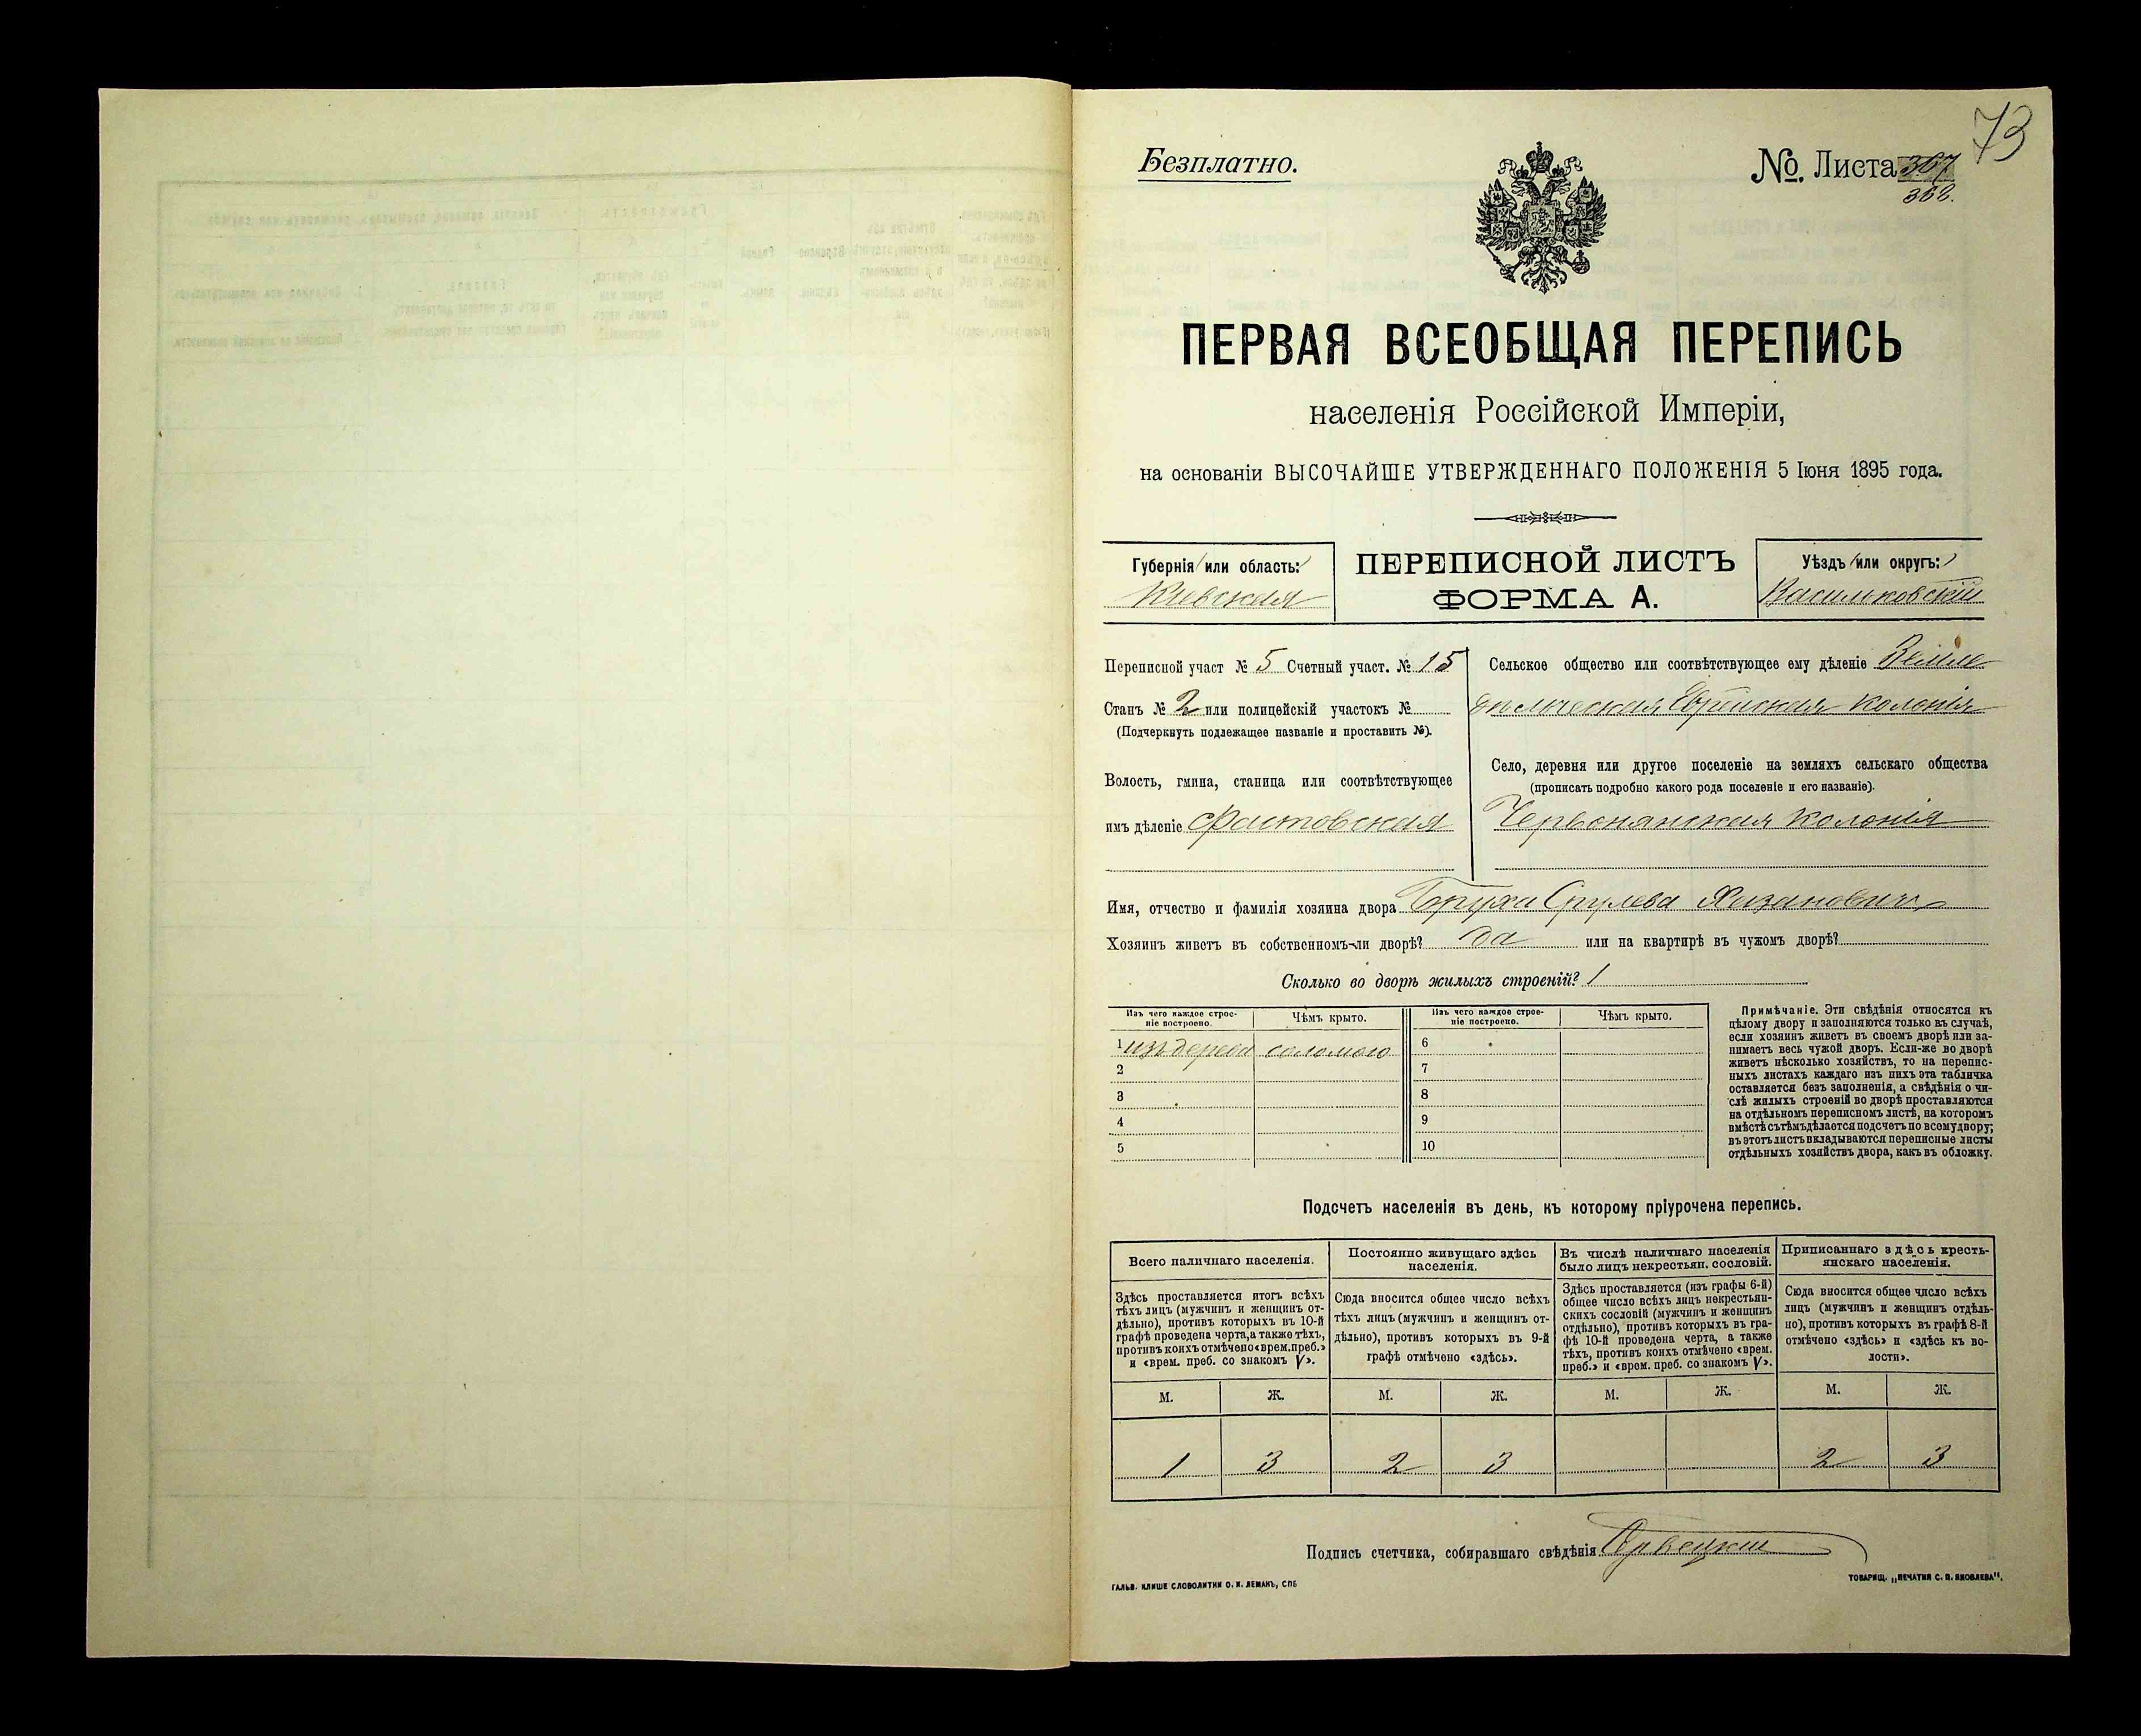 73
Безплатно.
№. Листа 367
368.
ПЕРВАЯ ВСЕОБЩАЯ ПЕРЕПИСЬ
населенія Россійской Имперіи,
на основаніи ВЫСОЧАЙШЕ УТВЕРЖДЕННАГО ПОЛОЖЕНІЯ 5 Іюня 1895 года.
Губернія или область:
Кіевская
ПЕРЕПИСНОЙ ЛИСТЪ
ФОРМА А.
Уѣздъ или округъ:
Васильковскій
Переписной участ № 5 Счетный участ. № 15
Станъ № 2 или полицейскій участокъ №
(Подчеркнуть подлежащее названіе и проставить №).
Волость, гмина, станица или соотвѣтствующее
имъ дѣленіе Фастовская
Сельское общество или соотвѣтствующее ему дѣленіе Земле
дѣльческая Еврейская колонія
Село, деревня или другое поселеніе на земляхъ сельскаго общества
(прописать подробно какого рода поселеніе и его названіе).
Червонянская колонія
Имя, отчество и фамилія хозяина двора Борухъ Срулева Хазановичъ
Хозяинъ живетъ въ собственномъ-ли дворѣ? да или на квартирѣ въ чужомъ дворѣ?
Сколько во дворѣ жилыхъ строеній? 1
Изъ чего каждое строе-
ніе построено.
Чѣмъ крыто.
Изъ чего каждое строе-
ніе построено.
Чѣмъ крыто.
1 изъ дерева соломою 6
2 7
3 8
4 9
5 10
Примѣчаніе. Эти свѣдѣнія относятся къ
цѣлому двору и заполняются только въ случаѣ,
если хозяинъ живетъ въ своемъ дворѣ или за-
нимаетъ весь чужой дворъ. Если-же во дворѣ
живетъ нѣсколько хозяйствъ, то на перепис-
ныхъ листахъ каждаго изъ нихъ эта табличка
оставляется безъ заполненія, а свѣдѣнія о чи-
слѣ жилыхъ строеній во дворѣ проставляются
на отдѣльномъ переписномъ листѣ, на которомъ
вмѣстѣ съ тѣмъ дѣлается подсчетъ по всему двору;
въ этотъ листъ вкладываются переписные листы
отдѣльныхъ хозяйствъ двора, какъ въ обложку.
Подсчетъ населенія въ день, къ которому пріурочена перепись.
Всего наличнаго населенія.
Здѣсь проставляется итогъ всѣхъ
тѣхъ лицъ (мужчинъ и женщинъ от-
дѣльно), противъ которыхъ въ 10-й
графѣ проведена черта, а также тѣхъ,
противъ коихъ отмѣчено «врем. преб.»
и «врем. преб. со знакомъ V».
Постоянно живущаго здѣсь
населенія.
Сюда вносится общее число всѣхъ
тѣхъ лицъ (мужчинъ и женщинъ от-
дѣльно), противъ которыхъ въ 9-й
графѣ отмѣчено «здѣсь».
Въ числѣ наличнаго населенія
было лицъ некрестьян. сословій.
Здѣсь проставляется (изъ графы 6-й)
общее число всѣхъ лицъ некрестьян-
скихъ сословій (мужчинъ и женщинъ
отдѣльно), противъ которыхъ въ гра-
фѣ 10-й проведена черта, а также
тѣхъ, противъ коихъ отмѣчено «врем.
преб.» и «врем. преб. со знакомъ V».
Приписаннаго здѣсь кресть-
янскаго населенія.
Сюда вносится общее число всѣхъ
лицъ (мужчинъ и женщинъ отдѣль-
но), противъ которыхъ въ графѣ 8-й
отмѣчено «здѣсь» и «здѣсь къ во-
лости».
М. Ж. М. Ж. М. Ж. М. Ж.
1 3 2 3 2 3
Подпись счетчика, собиравшаго свѣдѣнія
ГАЛЬВ. КЛИШЕ СЛОВОЛИТНИ О. И. ЛЕМАНЪ, СПБ
ТОВАРИЩ. „ПЕЧАТНЯ С. П. ЯКОВЛЕВА".